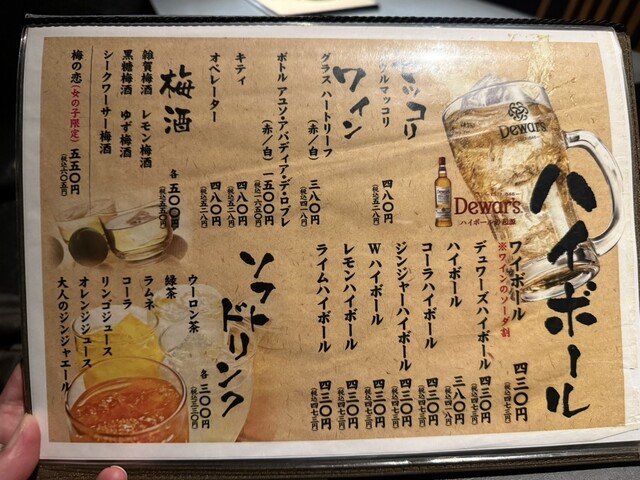 Dewar's
Dewar's
ハイボール
ワイボール 四三〇円
(税込四七三円)
※ワインのソーダ割
デュワーズハイボール 四三〇円
(税込四七三円)
ハイボール 三八〇円
(税込四一八円)
コーラハイボール 四三〇円
(税込四七三円)
ジンジャーハイボール 四三〇円
(税込四七三円)
Wハイボール 四三〇円
(税込四七三円)
レモンハイボール 四三〇円
(税込四七三円)
ライムハイボール 四三〇円
(税込四七三円)
マッコリ
ツルマッコリ 四八〇円
(税込五二八円)
ワイン
グラス ハートリーフ
(赤/白) 三八〇円
(税込四一八円)
ボトル アユソ・アバディア・デ・ロブレ
(赤/白) 一五〇〇円
(税込一六五〇円)
キティ 四八〇円
(税込五二八円)
オペレーター 四八〇円
(税込五二八円)
梅酒
雑賀梅酒 レモン梅酒
黒糖梅酒 ゆず梅酒
シークワーサー梅酒
各 五〇〇円
(税込五五〇円)
梅の恋(女の子限定) 五五〇円
(税込六〇五円)
ソフトドリンク
ウーロン茶
緑茶
ラムネ
コーラ
リンゴジュース
オレンジジュース
大人のジンジャエール
各 三〇〇円
(税込三三〇円)